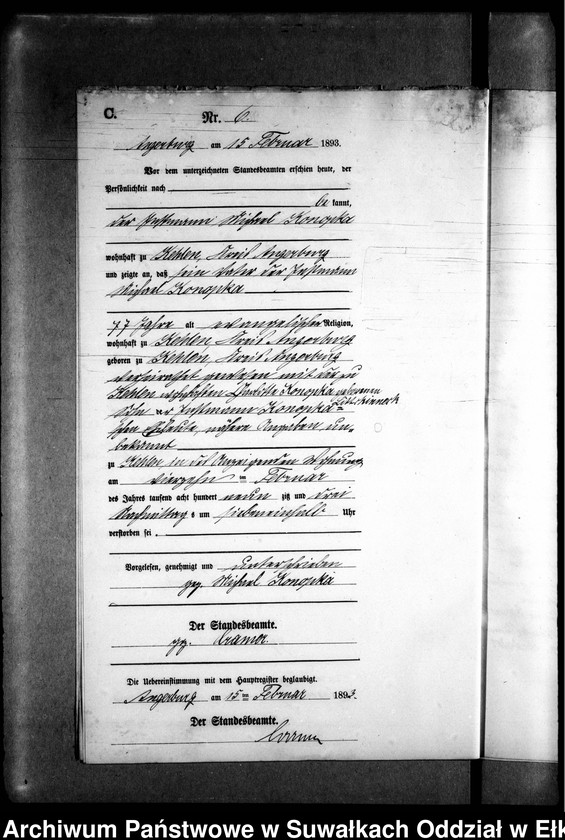 C.
Nr. 6.
Angerburg am 15 Februar 1893.
Vor dem unterzeichneten Standesbeamten erschien heute, der
Persönlichkeit nach
be kannt,
der Instmann Michael Konopka
wohnhaft zu Kehlen, Kreis Angerburg
und zeigte an, daß sein Vater der Instmann
Michael Konopka
77 Jahre alt evangelischer Religion,
wohnhaft zu Kehlen Kreis Angerburg
geboren zu Kehlen, Kreis Angerburg
verheirathet gewesen mit der zu
Kehlen Konopka geborenen
Sohn der Instmann Konopka-
schen Eheleute, nähere Angaben un-
bekannt
zu Kehlen in des Anzeigenden Wohnung
am vierzehn ten Februar
des Jahres tausend acht hundert neun zig und drei
Nachmittags um siebeneinhalb Uhr
verstorben sei.
Vorgelesen, genehmigt und unterschrieben
gez. Michael Konopka
Der Standesbeamte.
gez. Cramer.
Die Uebereinstimmung mit dem Hauptregister beglaubigt.
Angerburg am 15 ten Februar 1893.
Der Standesbeamte.
Archiwum Państwowe w Suwałkach Oddział w Ełk